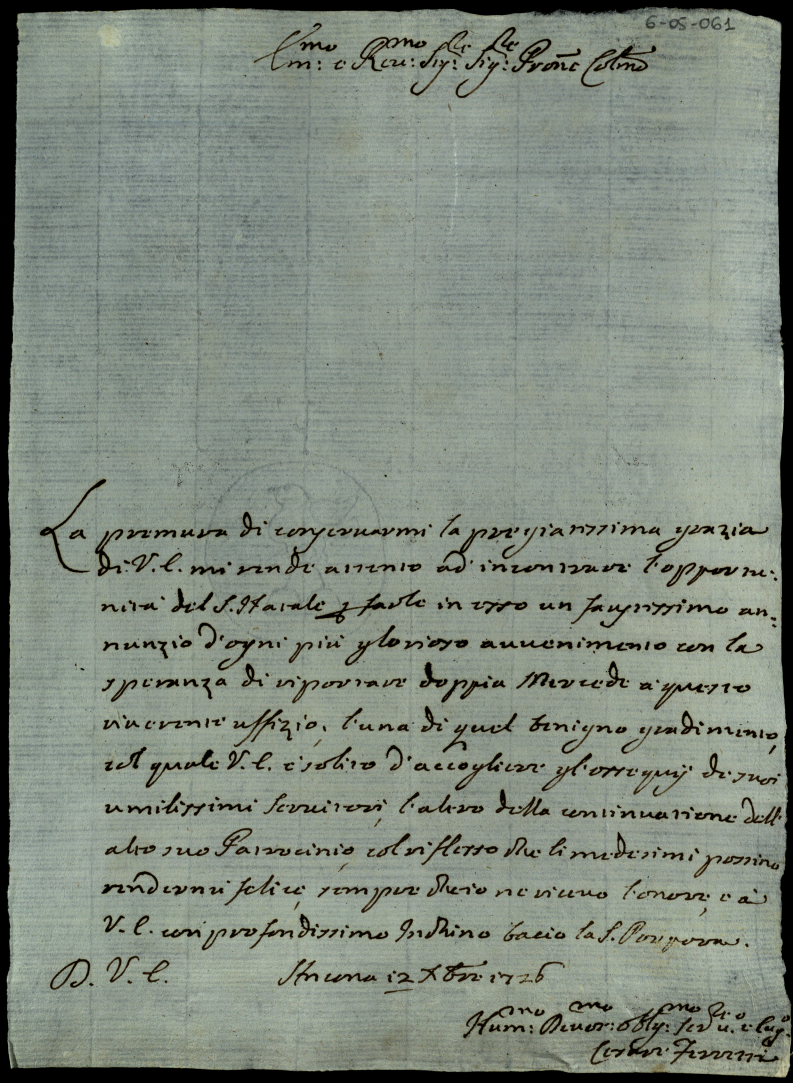 6-05-061
Em:mo e Rev:mo Sig:re Sig:re Prone Colmo
La premura di conseruarmi la pregiatissima grazia
di V. E. mi rende attento ad incontrare l'opportu:
nità del S. Natale p farle in esso un faustissimo an:
nunzio d'ogni più glorioso avvenimento con la
speranza di riportare doppia Mercede à questo
riverente uffizio, l'una di quel benigno gradimento,
col quale V. E. è solito d'accogliere gl'ossequij de suoi
umilissimi Servitori, l'altro della continuatione dell'
alto suo Patrocinio, col riflesso che li medesimi possino
rendermi felice, sempre che io ne riceva l'onore, e à
V. E. con profondissimo Inchino bacio la S. Porpora.
D. V. E. Ancona 12 Xbre 1726
Hum:mo Devot:mo obblig:mo Ser:re
Cesare Ferretti